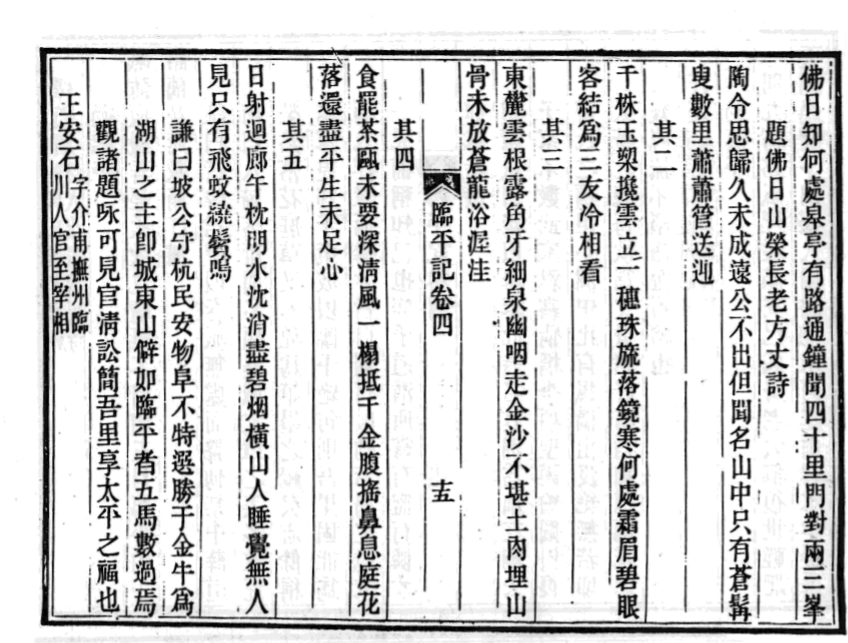 佛日知何處皋亭有路通鐘聞四十里門對兩三峯
題佛日山榮長老方丈詩
陶令思歸久未成遠公不出但聞名山中只有蒼髯
叟數里蕭蕭管送迎
其二
千株玉槊攙雲立一穗珠旒落鏡寒何處霜眉碧眼
客結爲三友冷相看
其三
東麓雲根露角牙細泉幽咽走金沙不堪土肉埋山
骨未放蒼龍浴渥洼
臨平記卷四
十五
其四
食罷茶甌未要深淸風一榻抵千金腹搖鼻息庭花
落還盡平生未足心
其五
日射迴廊午枕明水沈消盡碧烟橫山人睡覺無人
見只有飛蚊繞鬢鳴
謙曰坡公守杭民安物阜不特選勝于金牛爲
湖山之主卽城東山僻如臨平者五馬數過焉
觀諸題咏可見官淸訟簡吾里享太平之福也
王安石字介甫撫州臨
川人官至宰相